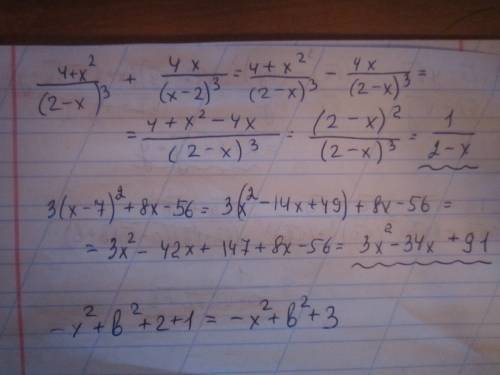 (4+x²)/(2-x)³ + (4x)/(x-2)³ = (4+x²)/(2-x)³ - (4x)/(2-x)³ =
= (4+x²-4x)/((2-x)³ = (2-x)²/(2-x)³ = 1/(2-x)
3(x-7)²+8x-56 = 3(x²-14x+49)+8x-56 =
= 3x²-42x+147+8x-56 = 3x²-34x+91
-x²+b²+2+1 = -x²+b²+3